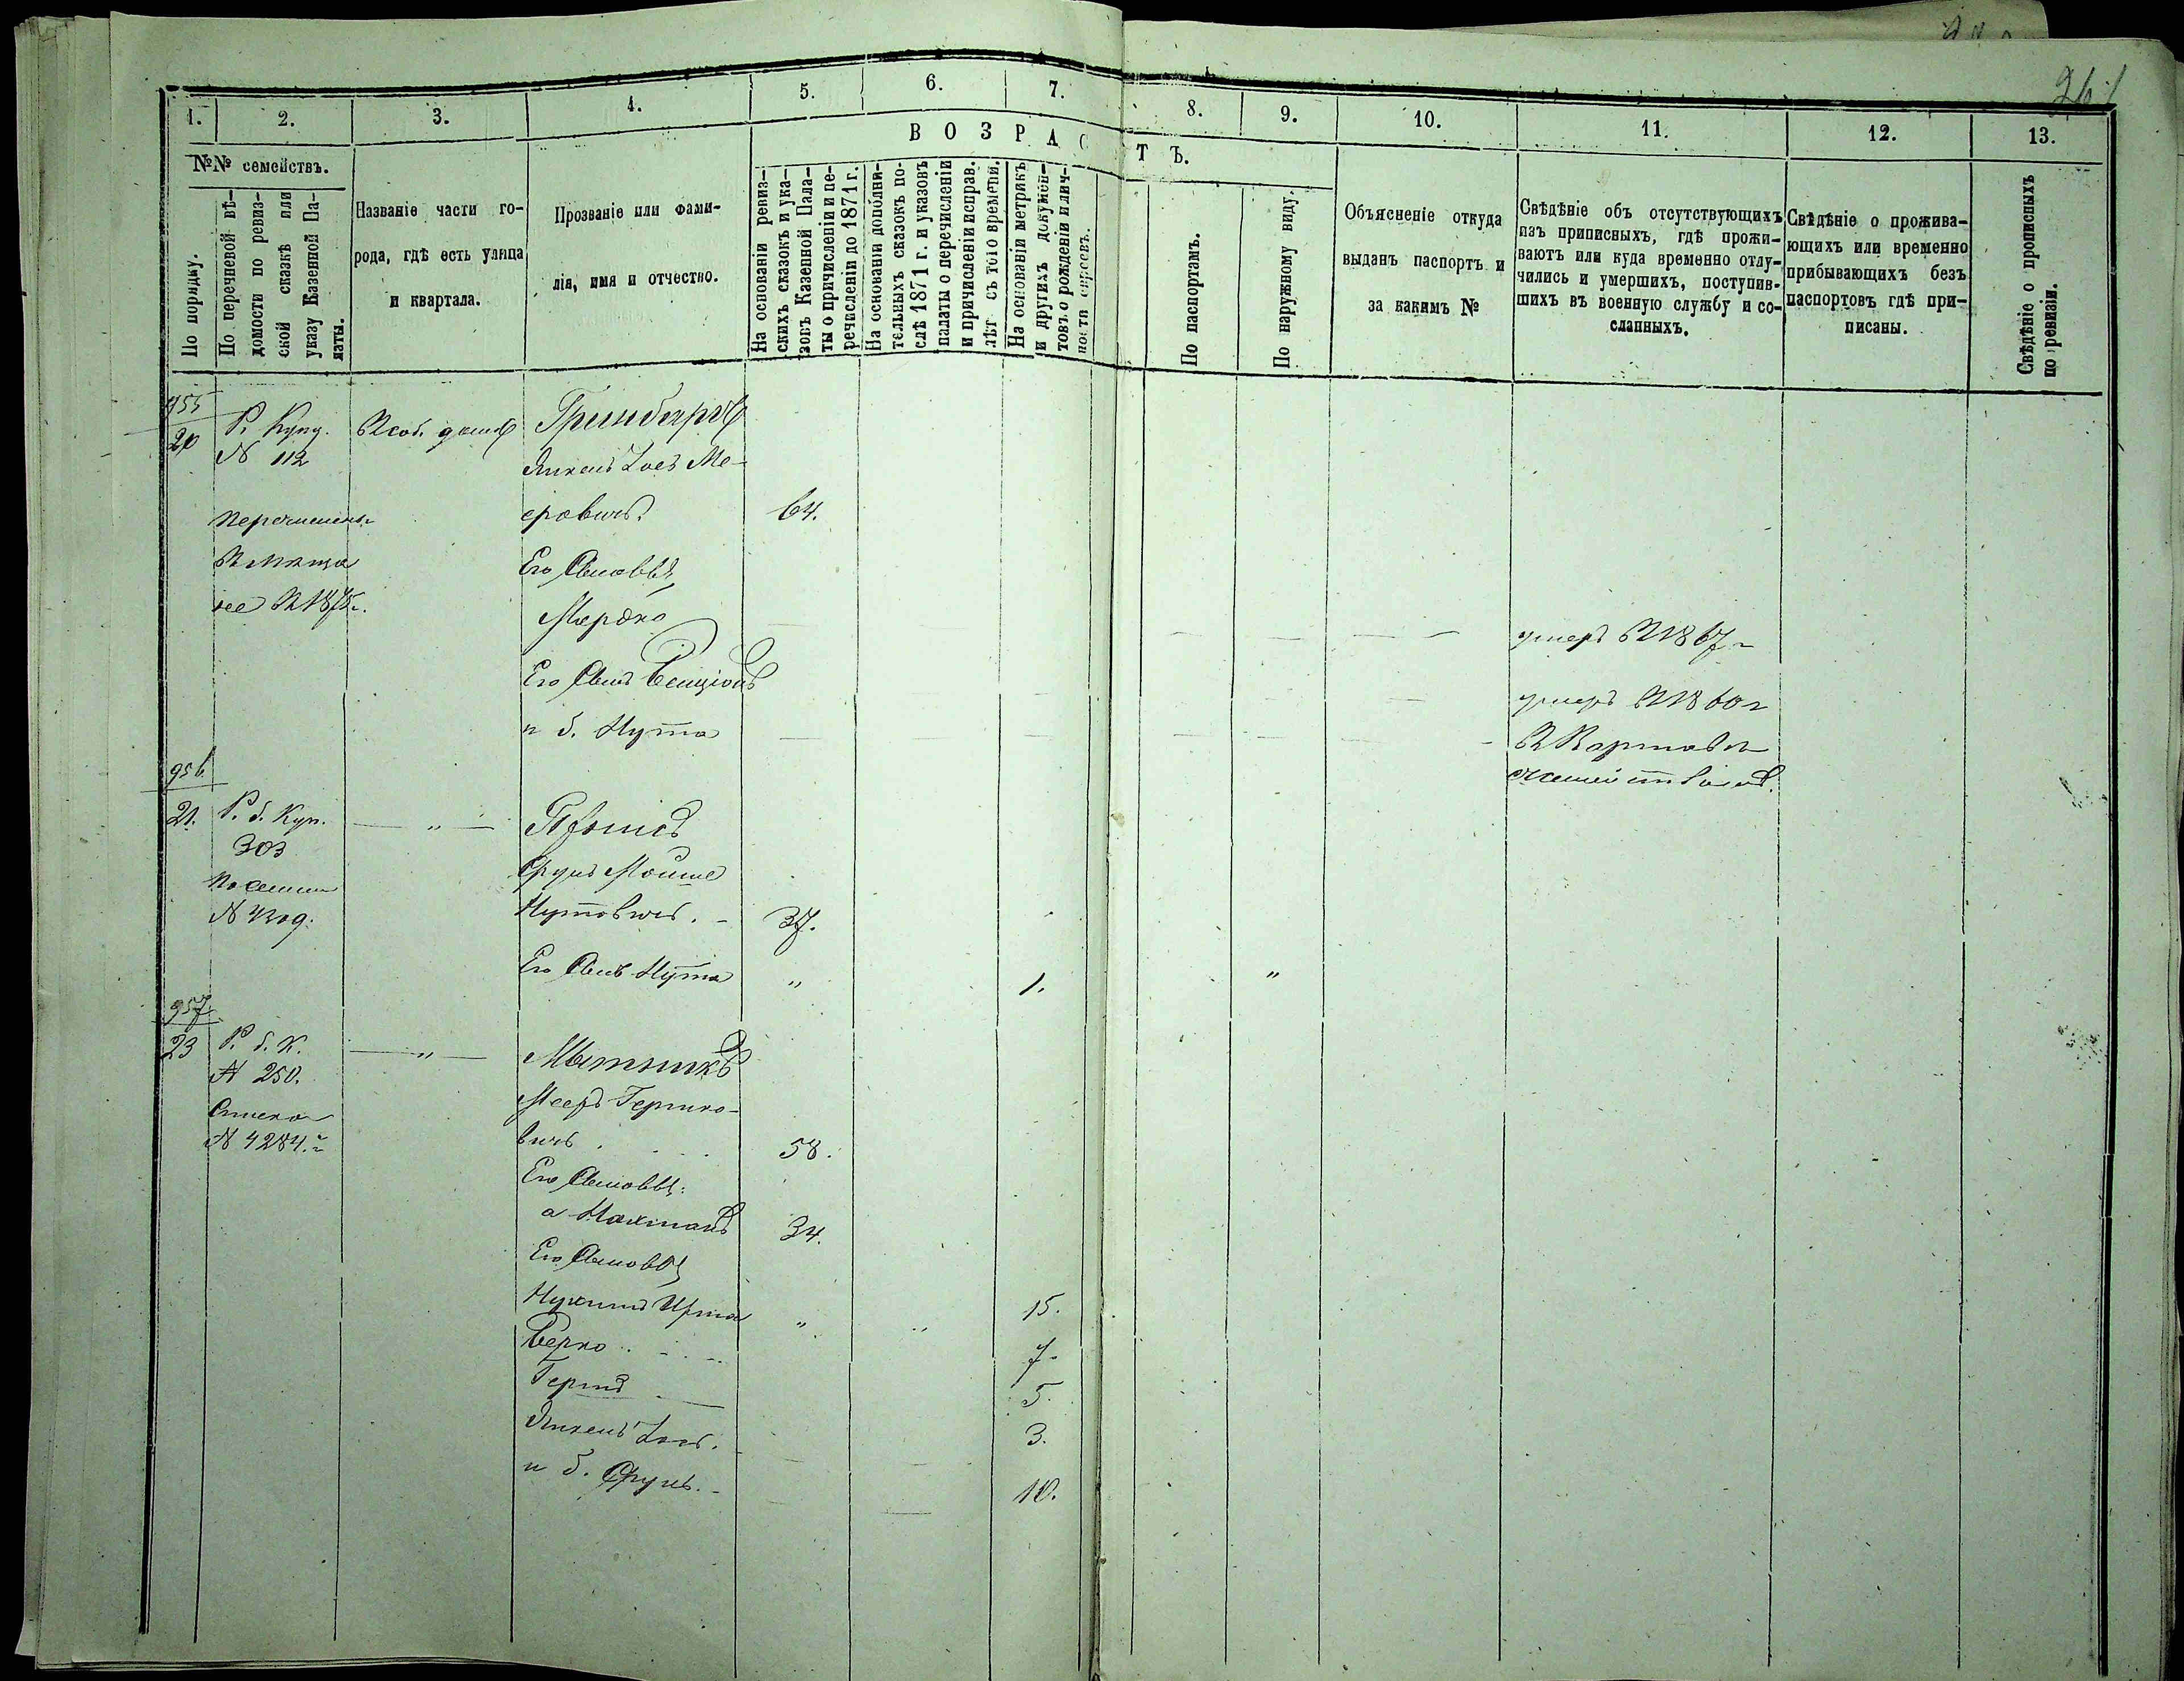 261
1.
2.
3.
4.
5.
6.
7.
8.
9.
10.
11.
12.
13.
ВОЗРАСТЪ.
№№ семействъ.
По порядку.
По перечневой вѣ-
домости по ревиз-
ской сказкѣ или
указу Казенной Па-
латы.
Названіе части го-
рода, гдѣ есть улица
и квартала.
Прозваніе или фами-
лія, имя и отчество.
На основаніи ревиз-
скихъ сказокъ и ука-
зовъ Казенной Пала-
ты о причисленіи и пе-
речисленіи до 1871 г.
На основаніи дополни-
тельныхъ сказокъ по-
слѣ 1871 г. и указовъ
палаты о перечисленіи
и причисленіи исправ.
лѣт съ того времени.
На основаніи метрикъ
и другихъ докумен-
товъ о рожденіи и лич-
ности евреевъ.
По паспортамъ.
По наружному виду.
Объясненіе откуда
выданъ паспортъ и
за какимъ №
Свѣдѣніе объ отсутствующихъ
изъ приписныхъ, гдѣ прожи-
ваютъ или куда временно отлу-
чились и умершихъ, поступив-
шихъ въ военную службу и со-
сланныхъ.
Свѣдѣніе о прожива-
ющихъ или временно
прибывающихъ безъ
паспортовъ гдѣ при-
писаны.
Свѣдѣніе о прописныхъ
по ревизіи.
955
20
Р. Куп.
N 112
В соб. домѣ
Гринбергъ
Янкель Іось Ме-
еровичъ.
64.
перечислен.
в мѣща
не в 1875 г.
Его Сыновья
Мерко
умеръ в 1867 г
Его Сынъ Бенціонъ
умеръ в 1860 г
и б. Нута
В Варшавѣ
956
21.
Р. б. Куп.
303
N 4309.
"
Срулъ Мошко
Нутовичъ. -
37.
Его Сынъ Нута
"
1.
"
957
23
Р. б. К.
N 250.
N 4284.
"
Мытникъ
Мееръ Гершко-
вичъ
58.
Его Сыновья:
а Нахманъ
34.
Его Сыновья
Нухимъ
"
15.
Берко
7.
Гершъ
5.
Янкель Іось.
3.
и б. Срулъ. -
10.